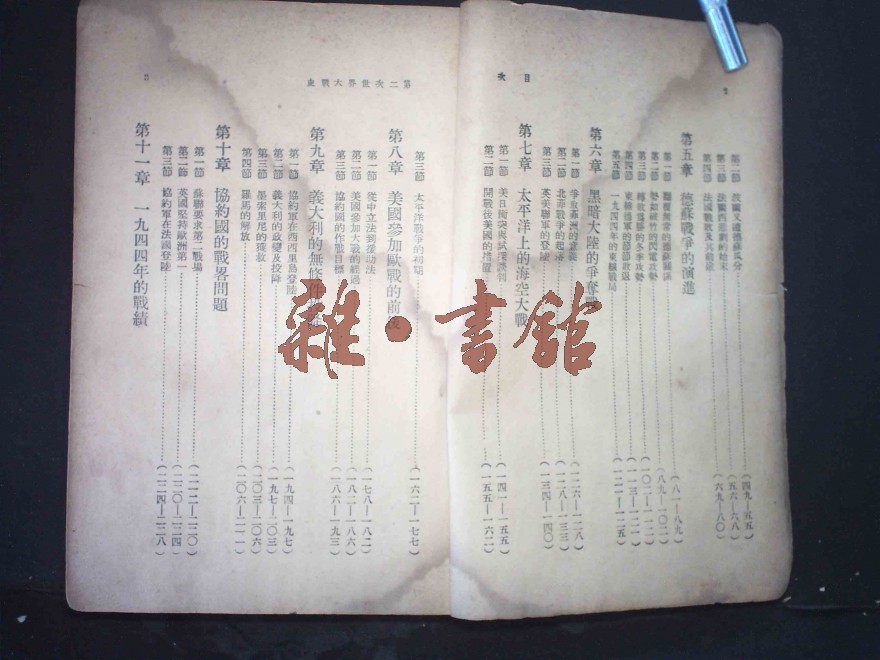 目次
第二節 波蘭又遭德蘇瓜分……(四九—五五)
第三節 法蘭西悲劇的始末……(五六—六八)
第四節 法國戰敗及其前途……(六九—八〇)
第五章 德蘇戰爭的演進
第一節……(八一—八九)
第二節 勢如破竹的閃電攻勢……(八九—一〇二)
第三節 轉敗為勝的冬季攻勢……(一〇二—一一二)
第四節……(一一三—一二一)
第五節 一九四四年的東線戰局……(一二一—一二五)
第六章 黑暗大陸的爭奪戰
第一節 爭奪非洲的意義……(一二六—一二八)
第二節 北非戰爭的起落……(一二八—一三三)
第三節 英美聯軍的登陸……(一三四—一四〇)
第七章 太平洋上的海空大戰
第一節 美日衝突與……(一四一—一五五)
第二節 開戰後美國的措置……(一五五—一六二)
第二次世界大戰史
第三節 太平洋戰爭的初期……(一六二—一七七)
第八章 美國參加歐戰的前後
第一節 從中立法到援助法……(一七八—一八二)
第二節 美國參加大戰的經過……(一八二—一八六)
第三節 協約國的作戰目標……(一八六—一九三)
第九章 義大利的無條件投降
第一節 協約軍在西西里島登陸……(一九四—一九七)
第二節 義大利的政變及投降……(一九七—二〇三)
第三節 墨索里尼的被救……(二〇三—二〇六)
第四節 羅馬的解放……(二〇六—二一一)
第十章 協約國的戰畧問題
第一節 蘇聯要求第二戰場……(二一二—二二〇)
第二節 英國堅持歐洲第一……(二二〇—二二四)
第三節 協約軍在法國登陸……(二二四—二二八)
第十一章 一九四四年的戰績
2
雜·書館